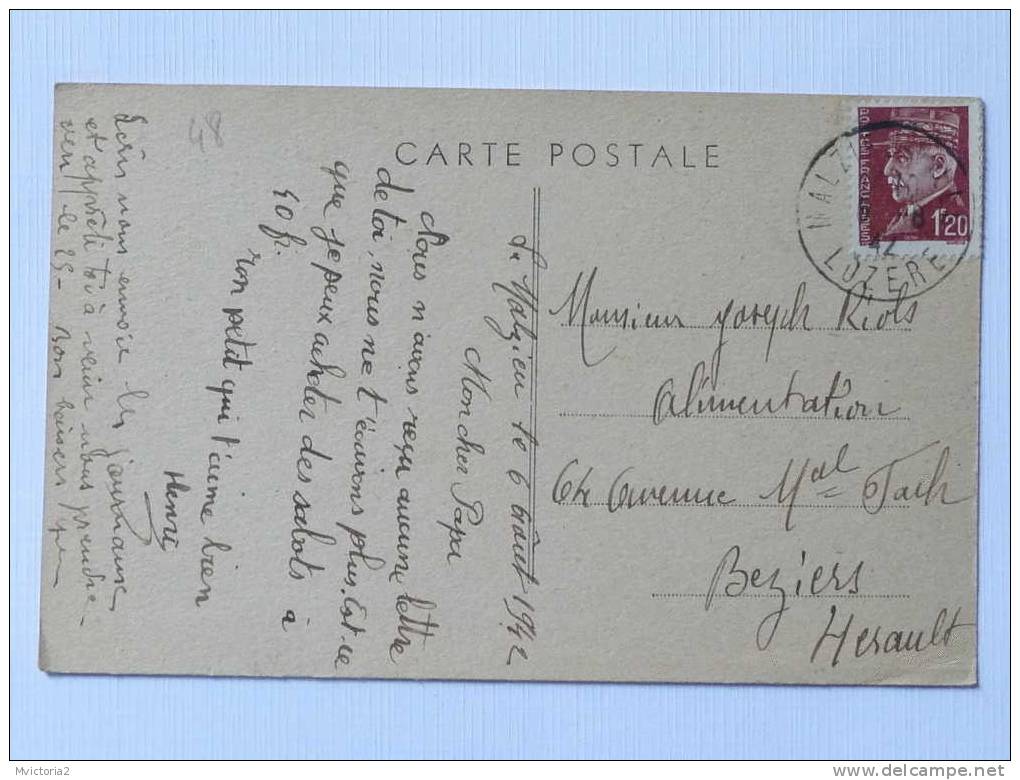 CARTE POSTALE
POSTES FRANÇAISES
1F20
MALZ
LOZERE
Le Malzieu le 6 août 1942
Mon cher Papa
Nous n'avons reçu aucune lettre
de toi, nous ne t'écrirons plus. Est-ce
que je peux acheter des sabots à
40 fr.
ton petit qui t'aime bien
Henri
nous envoie les journaux
et apprête toi à venir nous prendre
le 25 - bons baisers
48
Monsieur Joseph Riols
Alimentation
64 avenue Mal Foch
Beziers
Herault
Mvictoria2
delcampe.net